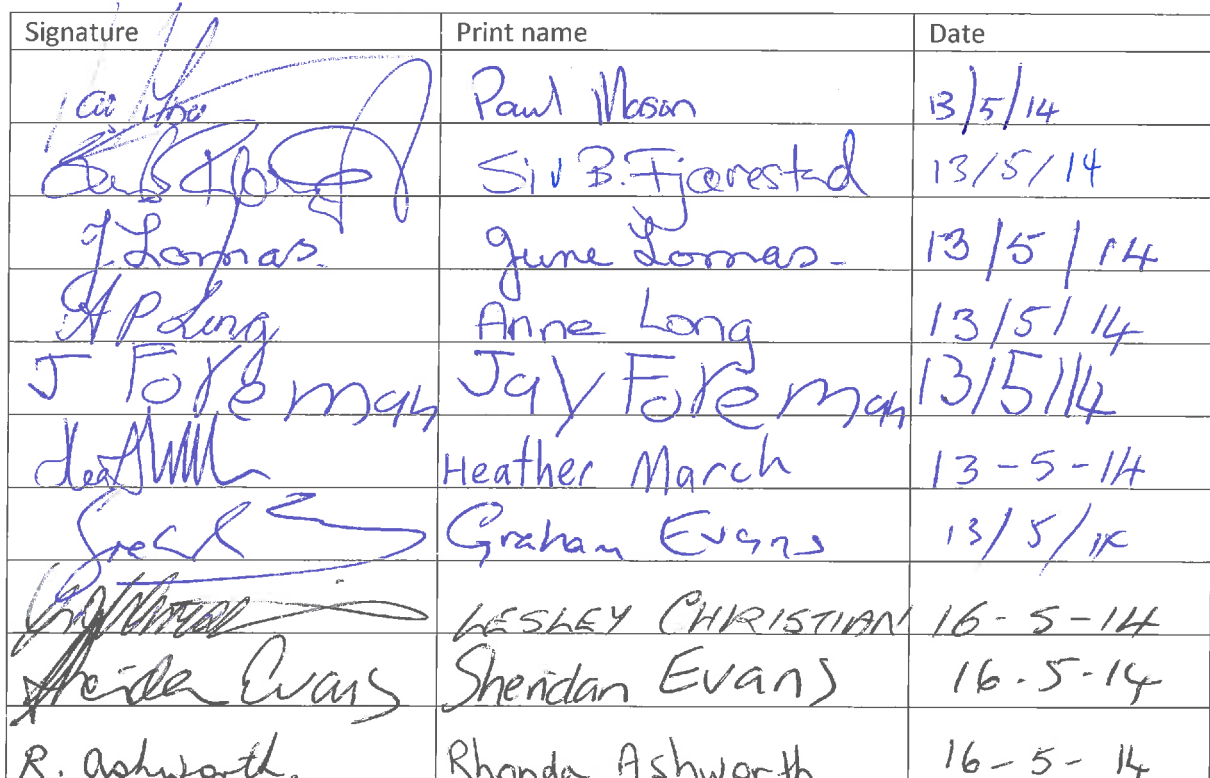 Signature Print name Date
Paul Mason 13/5/14
Siv B. Fjærestad 13/5/14
J. Lomas. June Lomas- 13/5/14
A P Long Anne Long 13/5/14
J Foreman Jay Foreman 13/5/14
Heather March 13-5-14
Graham Evans 13/5/14
LESLEY CHRISTIAN 16-5-14
Sheridan Evans Sheridan Evans 16.5-14
R. Ashworth. Rhonda Ashworth 16-5-14